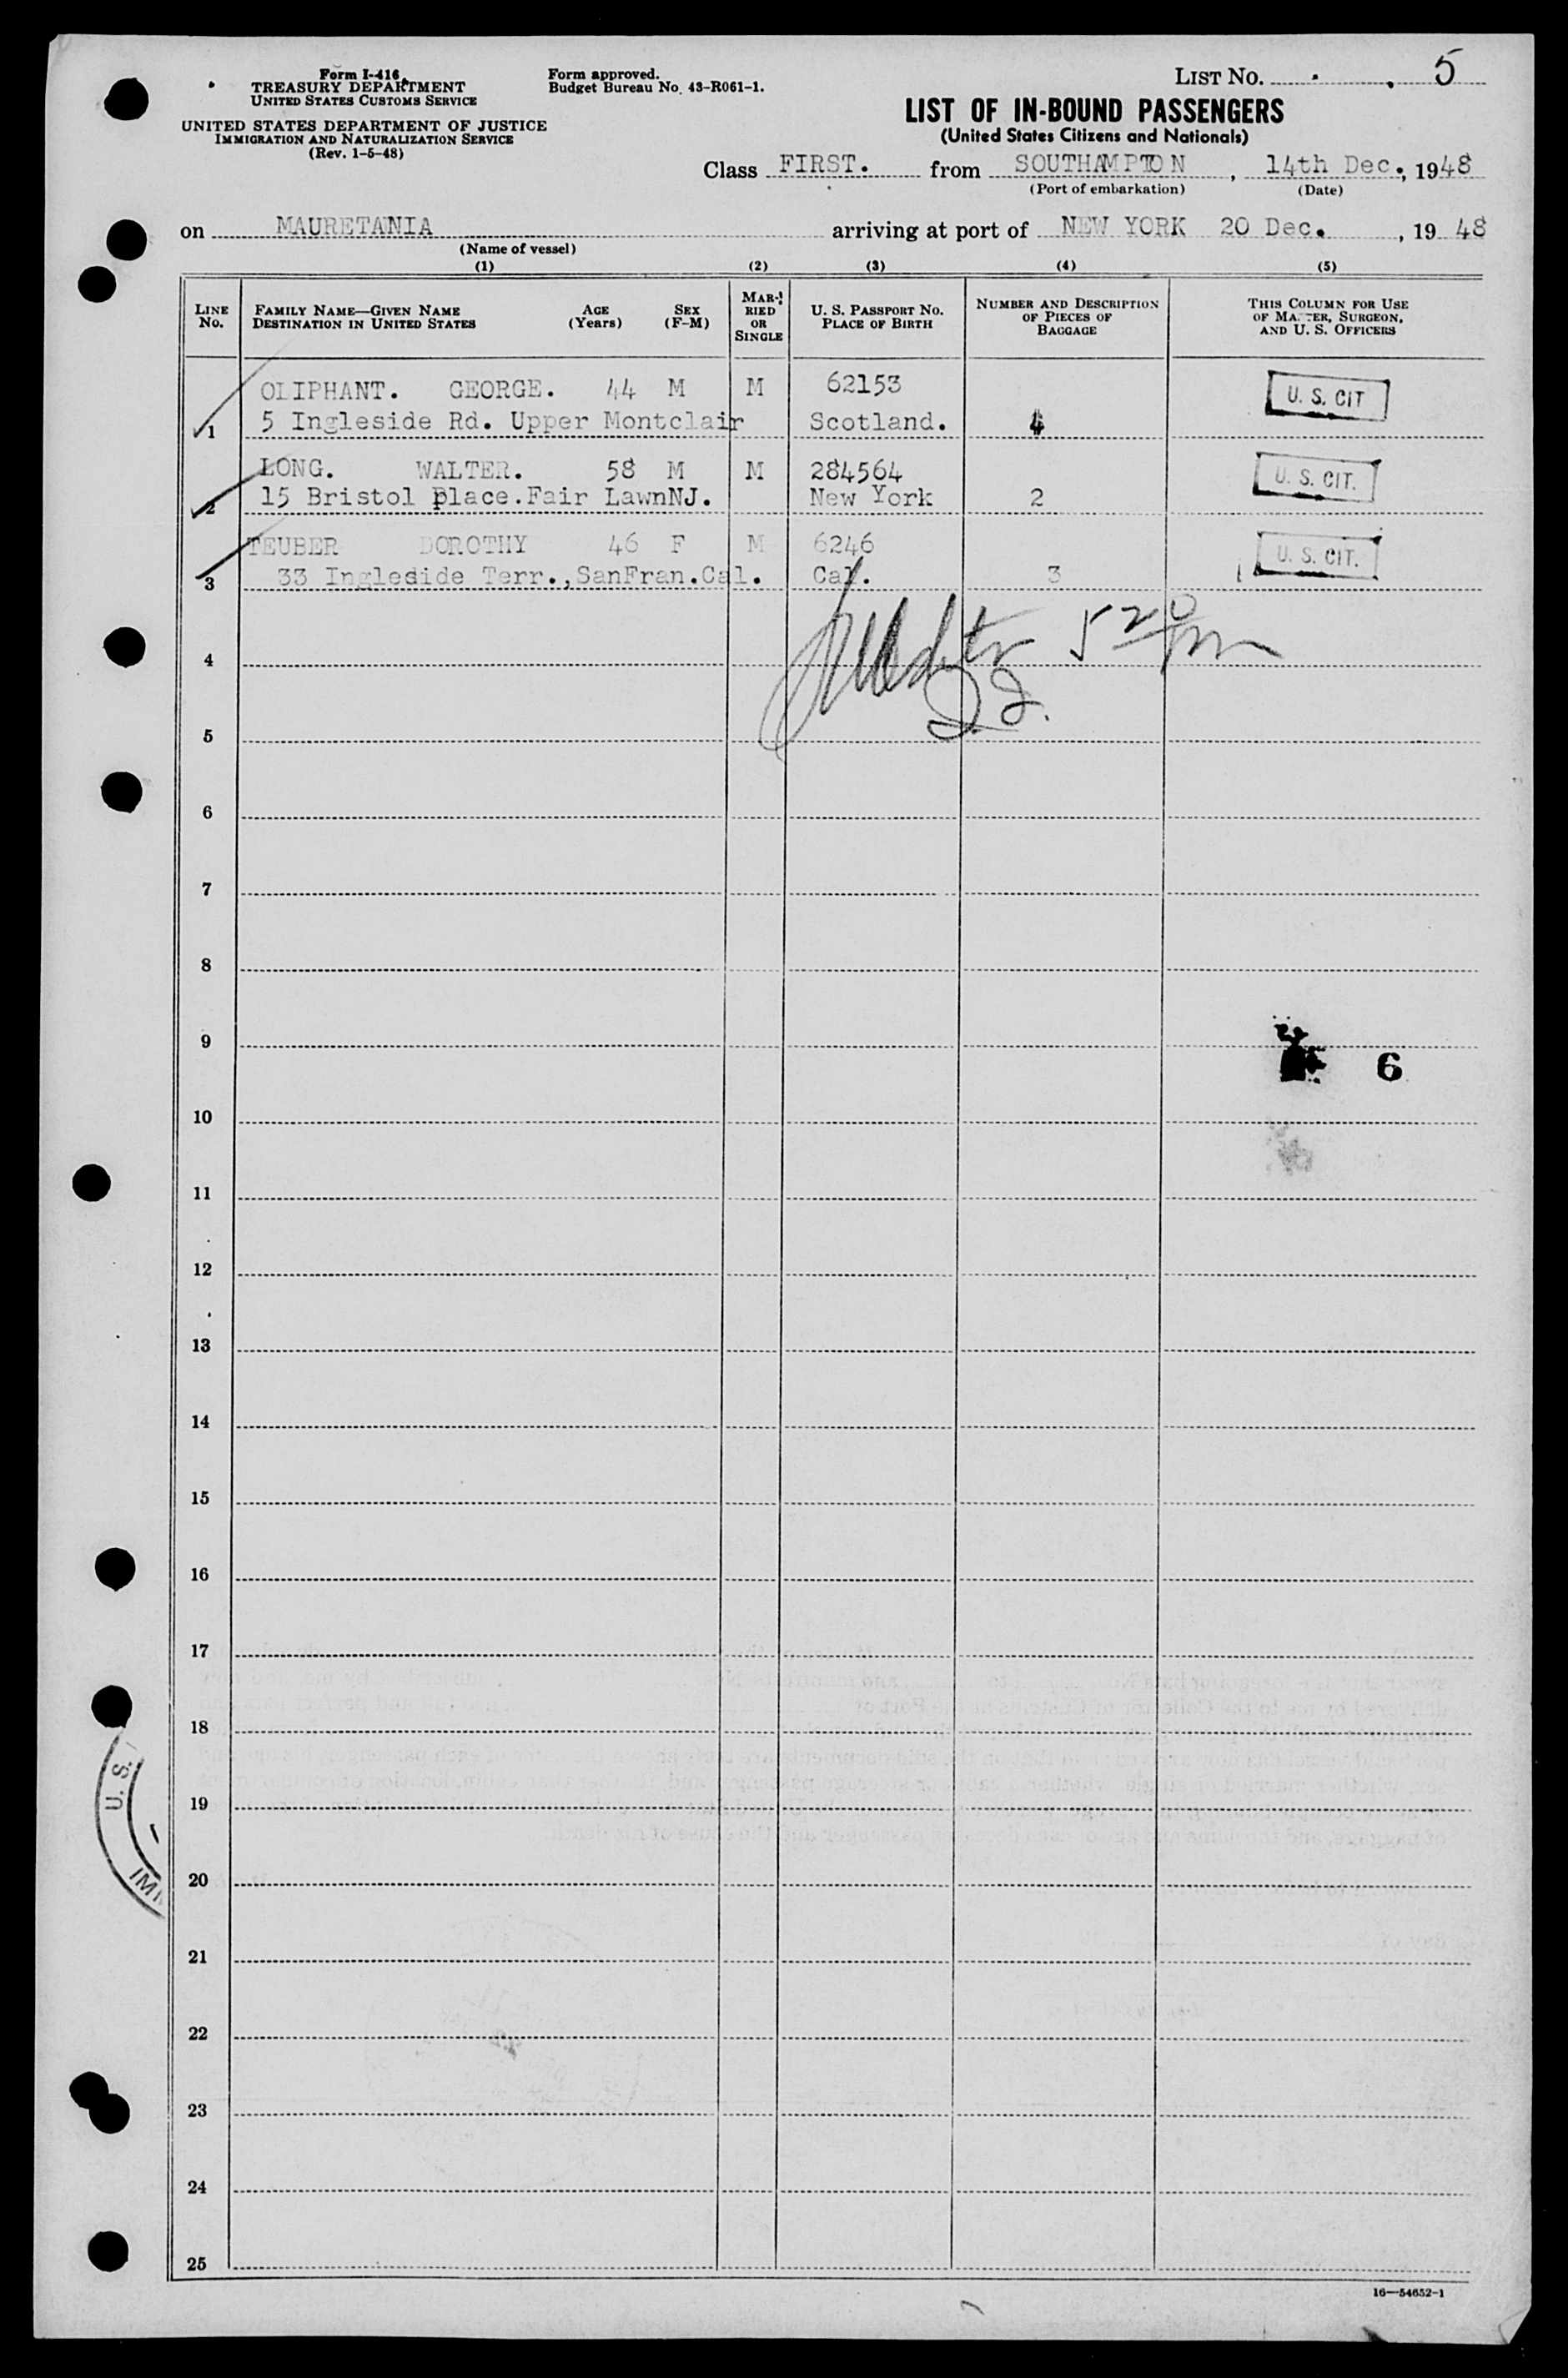 Form I-416
TREASURY DEPARTMENT
UNITED STATES CUSTOMS SERVICE
UNITED STATES DEPARTMENT OF JUSTICE
IMMIGRATION AND NATURALIZATION SERVICE
(Rev. 1-5-48)
Form approved.
Budget Bureau No. 43-R061-1.
LIST NO. 5
LIST OF IN-BOUND PASSENGERS
(United States Citizens and Nationals)
Class FIRST. from SOUTHAMPTON, 14th Dec., 1948
(Port of embarkation) (Date)
on MAURETANIA arriving at port of NEW YORK 20 Dec., 1948
(Name of vessel)
(1) (2) (3) (4) (5)
LINE No. FAMILY NAME—GIVEN NAME DESTINATION IN UNITED STATES AGE (Years) SEX (F-M) MARRIED OR SINGLE U. S. PASSPORT NO. PLACE OF BIRTH NUMBER AND DESCRIPTION OF PIECES OF BAGGAGE THIS COLUMN FOR USE OF MASTER, SURGEON, AND U. S. OFFICERS
OLIPHANT. GEORGE. 44 M M 62153 U. S. CIT
1 5 Ingleside Rd. Upper Montclair Scotland. 4
LONG. WALTER. 58 M M 284564 U. S. CIT.
2 15 Bristol place.Fair LawnNJ. New York 2
TEUBER DOROTHY 46 F M 6246 U. S. CIT.
3 33 Ingleside Terr.,SanFran.Cal. Cal. 3
5 20 pm
4
5
6
7
8
9
6
10
11
12
13
14
15
16
17
18
U. S.
19
20
IMM
21
22
23
24
25
16—54652-1